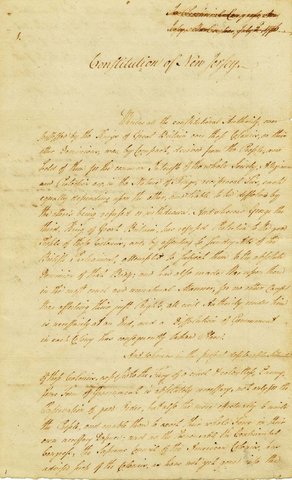 1.
In Provincial Congress New
Jersey Burlington July 2d 1776.
Constitution of New Jersey.
Whereas all the constitutional Authority, ever
possessed by the Kings of Great Britain over these Colonies, or their
other Dominions, was, by Compact, derived from the People, and
held of them for the common Interest of the whole Society, Allegiance
and Protection are, in the Nature of Things, reciprocal Ties, each
equally depending upon the other, and liable to be dissolved by
the others being refused or withdrawn. And whereas George the
third, King of Great Britain, has refused Protection to the good
People of these Colonies, and by assenting to sundry Acts of the
British Parliament, attempted to subject them to the absolute
Dominion of that Body; and has also made War upon them
in the most cruel and unnatural Manner, for no other Cause
than asserting their just Rights, all civil Authority under him
is necessarily at an End, and a Dissolution of Government
in each Colony has consequently taken Place.
And whereas in the present deplorable Situation
of these Colonies, exposed to the Fury of a cruel & relentless Enemy,
some Form of Government is absolutely necessary, not only for the
Preservation of good Order, but also the more effectually to unite
the People, and enable them to exert their whole Force in their
own necessary Defence; and as the honorable the Continental
Congress, the supreme Council of the American Colonies, has
advised such of the Colonies, as have not yet gone into this